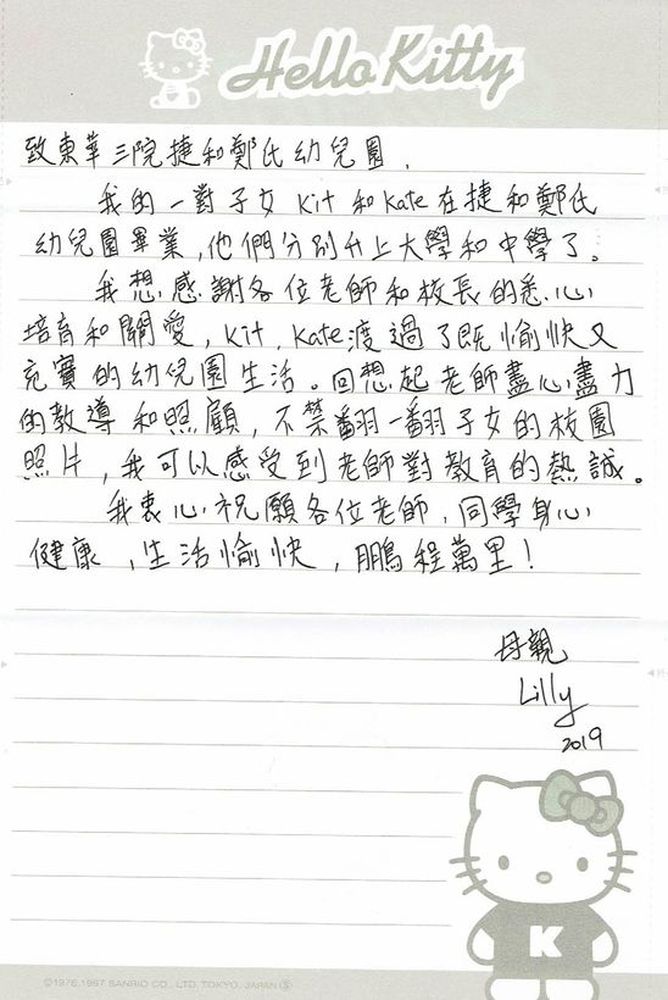 Hello Kitty
致東華三院捷和鄭氏幼兒園,
我的一對子女 Kit 和 Kate 在捷和鄭氏
幼兒園畢業,他們分別升上大學和中學了。
我想感謝各位老師和校長的悉心
培育和關愛, Kit, Kate渡過了既愉快又
充實的幼兒園生活。回想起老師盡心盡力
的教導和照顧,不禁翻一翻子女的校園
照片,我可以感受到老師對教育的熱誠。
我衷心祝願各位老師,同學身心
健康,生活愉快,鵬程萬里!
母親
Lilly
2019
K
©1976,1997 SANRIO CO., LTD. TOKYO, JAPAN Ⓢ